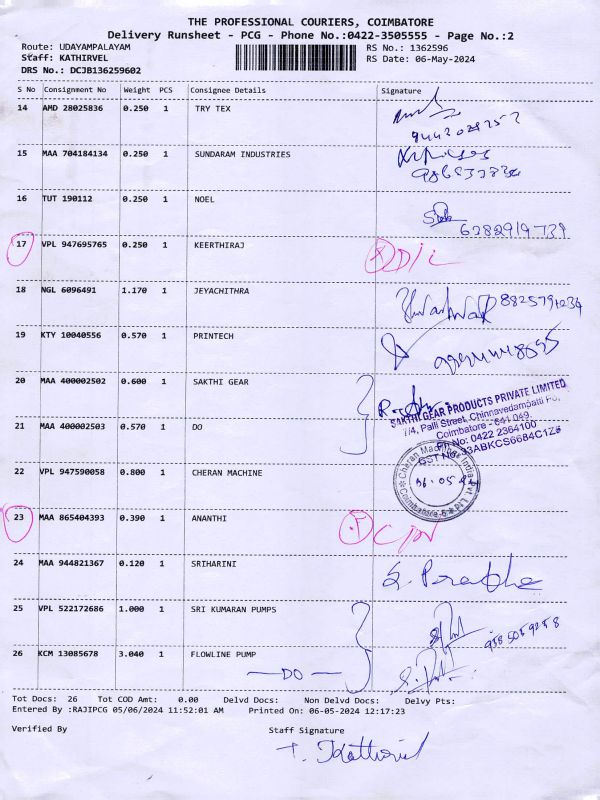 THE PROFESSIONAL COURIERS, COIMBATORE
Delivery Runsheet - PCG - Phone No.:0422-3505555 - Page No.:2
Route: UDAYAMPALAYAM RS No.: 1362596
Staff: KATHIRVEL RS Date: 06-May-2024
DRS No.: DCJB136259602
S No Consignment No Weight PCS Consignee Details Signature
14 AMD 28025836 0.250 1 TRY TEX
15 MAA 704184134 0.250 1 SUNDARAM INDUSTRIES
16 TUT 190112 0.250 1 NOEL
6282919739
17 VPL 947695765 0.250 1 KEERTHIRAJ D/L
18 NGL 6096491 1.170 1 JEYACHITHRA
8825791234
19 KTY 10040556 0.570 1 PRINTECH
20 MAA 400002502 0.600 1 SAKTHI GEAR
SAKTHI GEAR PRODUCTS PRIVATE LIMITED
7/4, Palli Street, Chinnavedampatti Po,
Coimbatore - 641 049.
Ph No: 0422 2364100
GST No: 33ABKCS6684C1Z6
21 MAA 400002503 0.570 1 DO
22 VPL 947590058 0.800 1 CHERAN MACHINE
Cheran Machines India Pvt. Ltd
Coimbatore-6
23 MAA 865404393 0.390 1 ANANTHI
24 MAA 944821367 0.120 1 SRIHARINI
25 VPL 522172686 1.000 1 SRI KUMARAN PUMPS
9585059258
26 KCM 13085678 3.040 1 FLOWLINE PUMP
DO
Tot Docs: 26 Tot COD Amt: 0.00 Delvd Docs: Non Delvd Docs: Delvy Pts:
Entered By :RAJIPCG 05/06/2024 11:52:01 AM Printed On: 06-05-2024 12:17:23
Verified By Staff Signature
T. Kathirvel